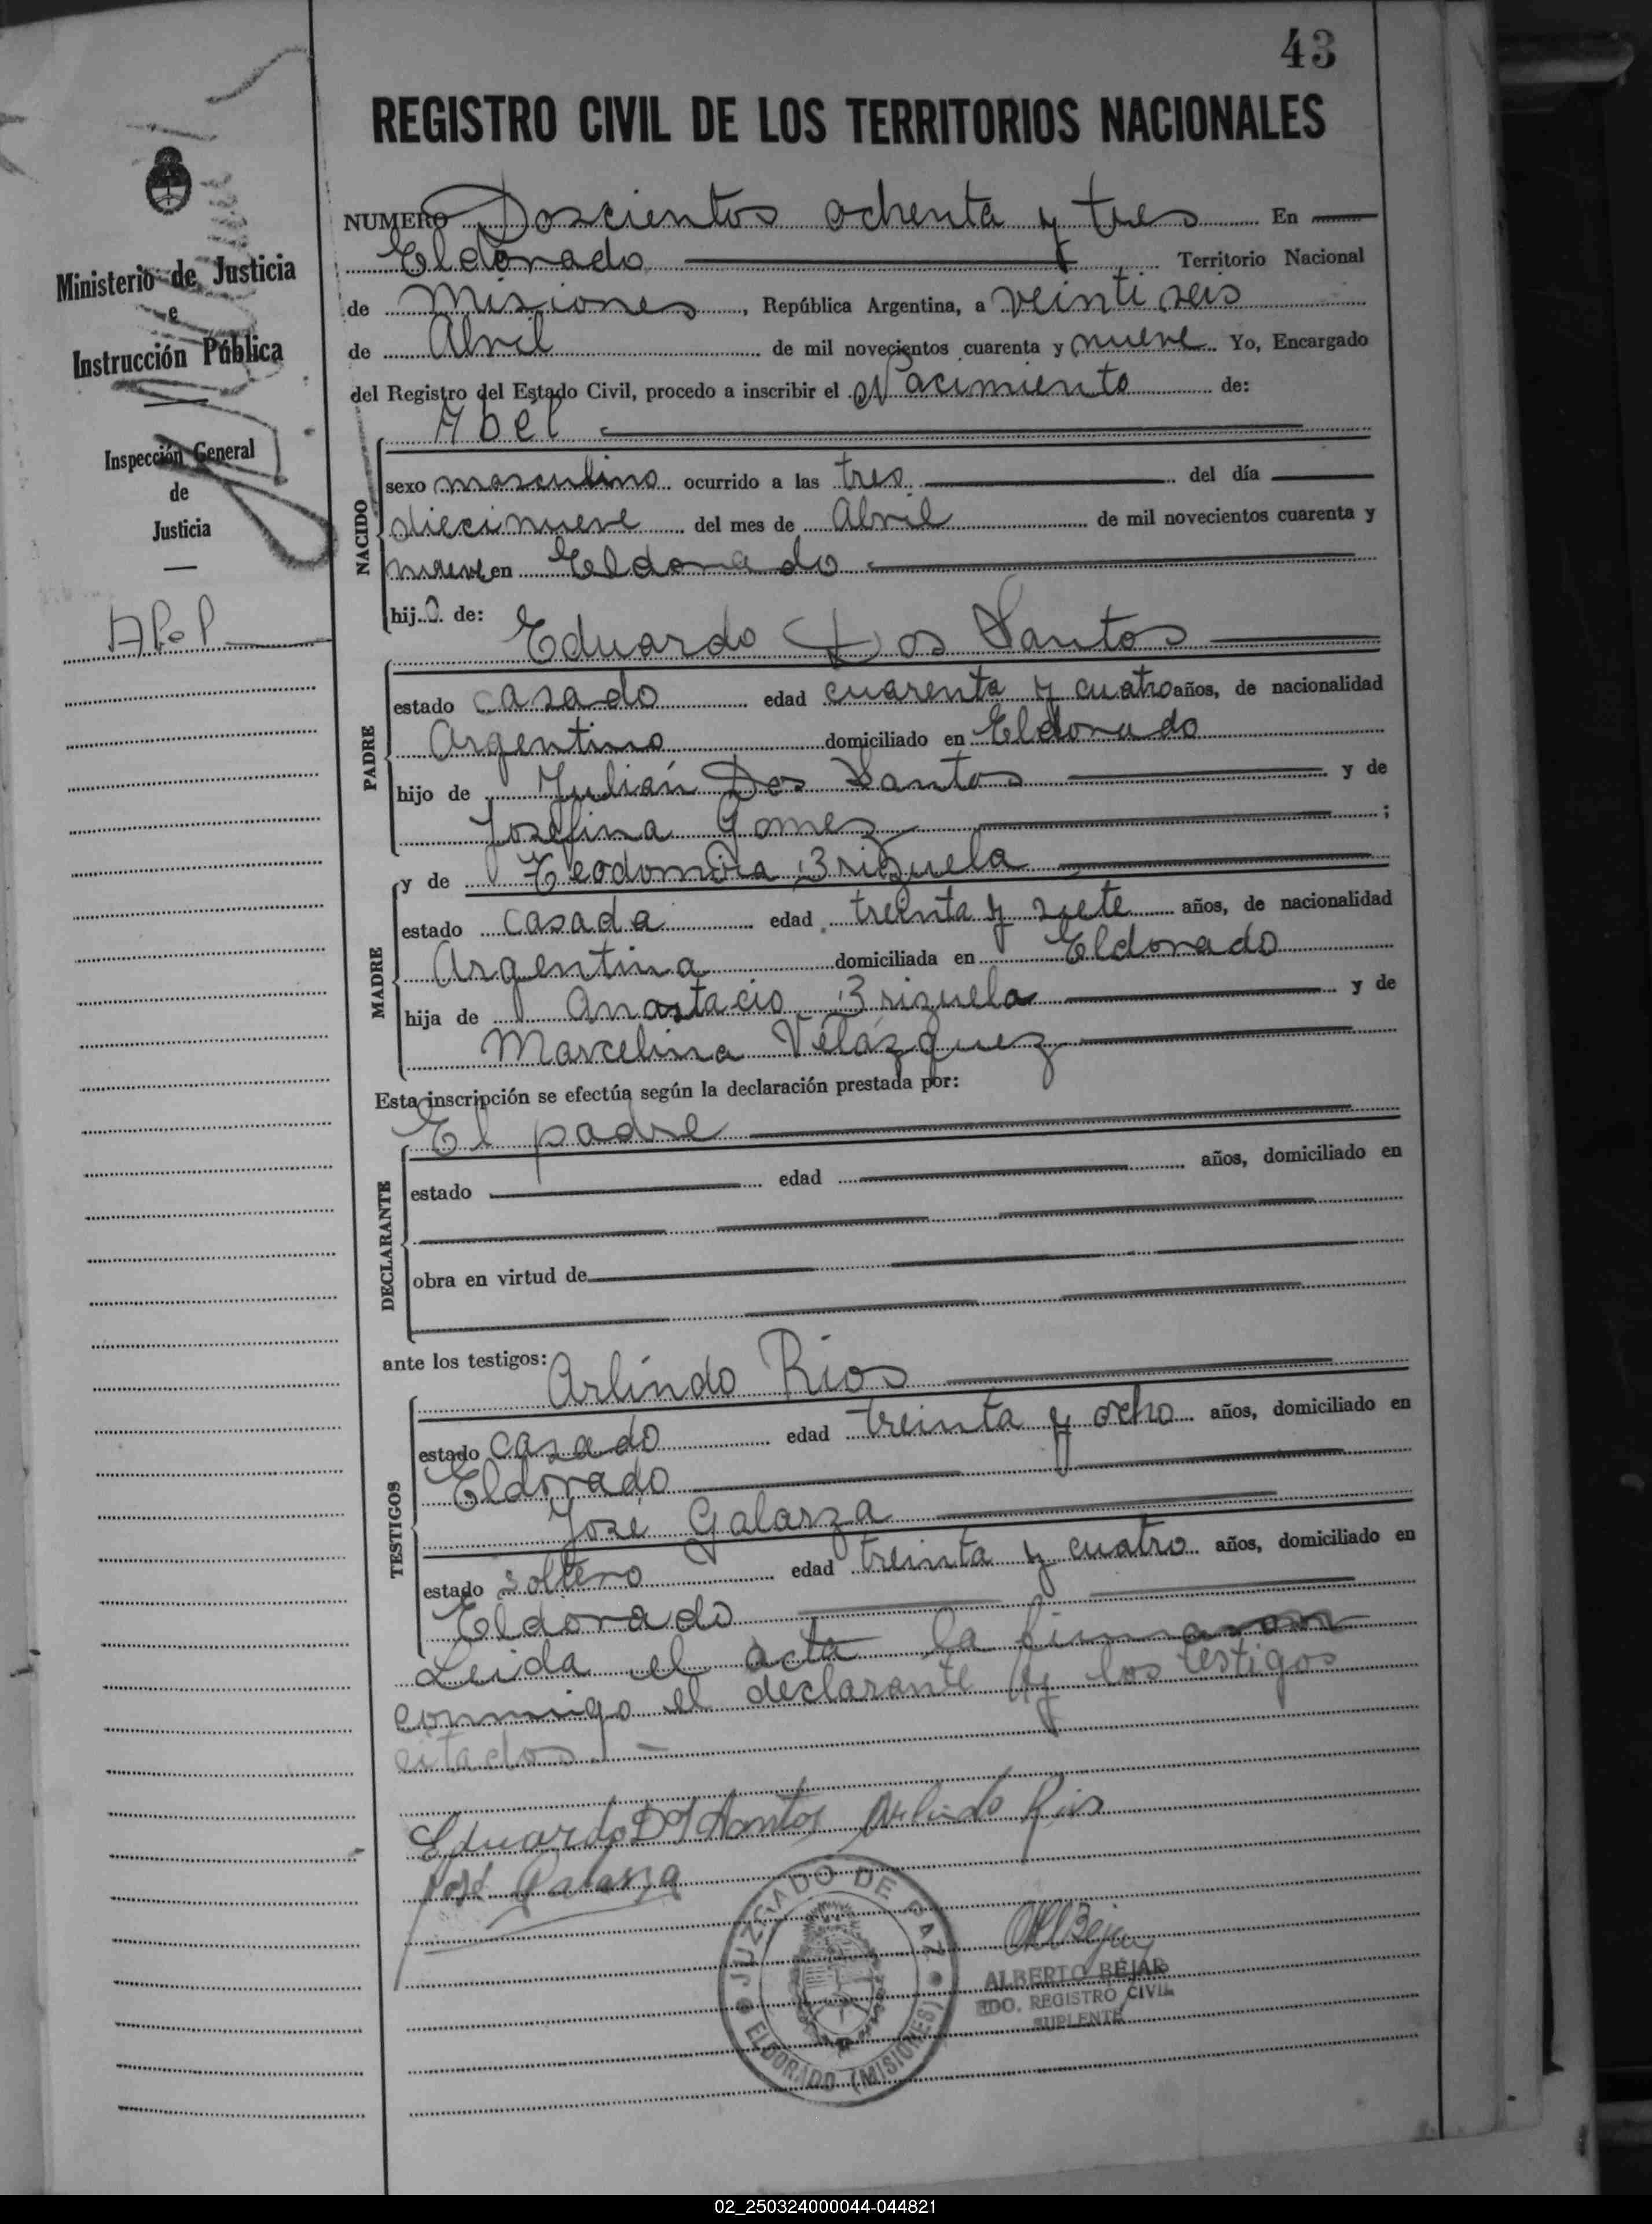 43
REGISTRO CIVIL DE LOS TERRITORIOS NACIONALES
Ministerio de Justicia
e
Instrucción Pública
Inspección General
de
Justicia
NUMERO Doscientos ochenta y tres En
Eldorado Territorio Nacional
de Misiones, República Argentina, a veinti seis
de Abril de mil novecientos cuarenta y nueve Yo, Encargado
del Registro del Estado Civil, procedo a inscribir el Nacimiento de:
Abel
NACIDO
sexo masculino ocurrido a las tres del día
diecinueve del mes de Abril de mil novecientos cuarenta y
nueve en Eldorado
hijo de:
Eduardo Dos Santos
PADRE
estado casado edad cuarenta y cuatro años, de nacionalidad
Argentino domiciliado en Eldorado
hijo de Julián Dos Santos y de
Josefina Gomez ;
y de Teodomira Brizuela
MADRE
estado casada edad treinta y siete años, de nacionalidad
Argentina domiciliada en Eldorado
hija de Anastacio Brizuela y de
Marcelina Velázquez
Esta inscripción se efectúa según la declaración prestada por:
El padre
DECLARANTE
estado edad años, domiciliado en
obra en virtud de
ante los testigos: Arlindo Rios
TESTIGOS
estado casado edad treinta y ocho años, domiciliado en
Eldorado
José Galarza
estado soltero edad treinta y cuatro años, domiciliado en
Eldorado
Leida el acta la firmaron
conmigo el declarante y los testigos
citados.-
Eduardo Dos Santos Arlindo Rios
José Galarza
JUZGADO DE PAZ
ELDORADO (MISIONES)
ALBERTO BÉJAR
EDO. REGISTRO CIVIL
SUPLENTE
02_250324000044-044821